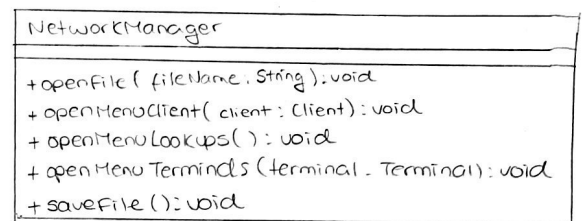 NetworkManager
+ openFile( fileName: String): void
+ openMenuClient( client : Client): void
+ openMenuLookups() : void
+ openMenuTerminals (terminal - Terminal): void
+ saveFile (): void